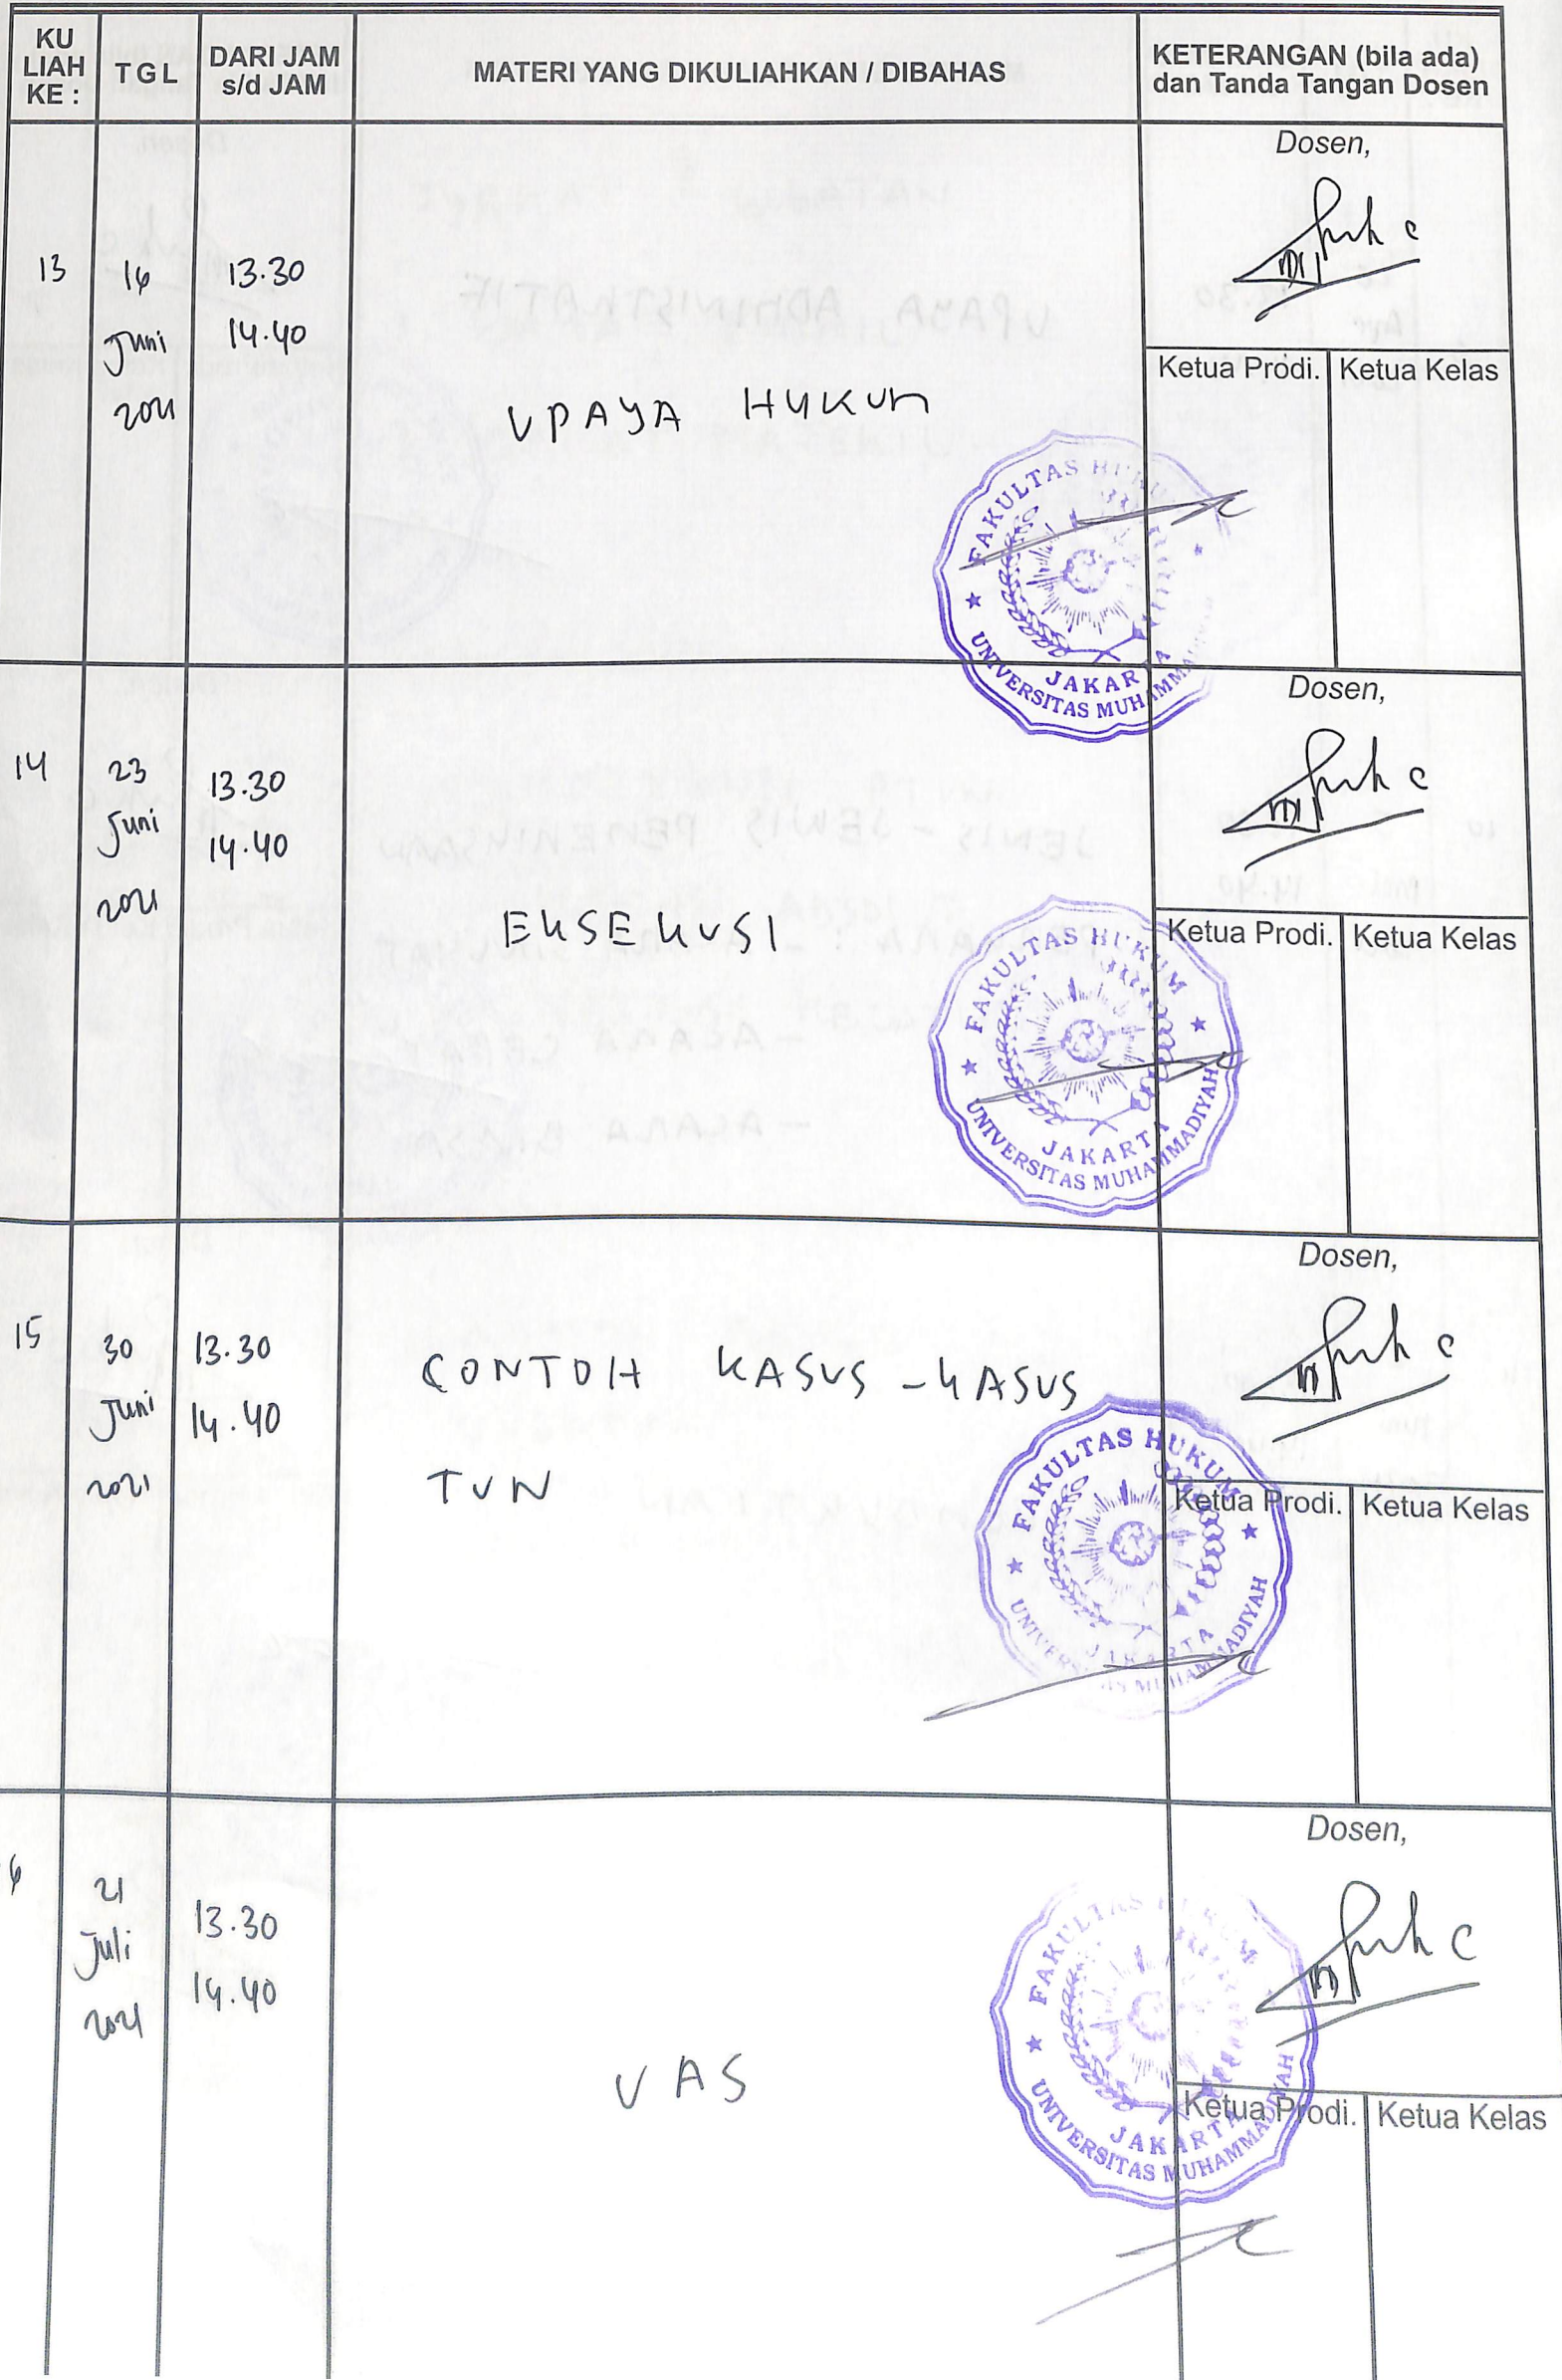 KU
LIAH
KE :
TGL
DARI JAM
s/d JAM
MATERI YANG DIKULIAHKAN / DIBAHAS
KETERANGAN (bila ada)
dan Tanda Tangan Dosen
13
16
Juni
2021
13.30
14.40
UPAYA HUKUM
Dosen,
Ketua Prodi.
Ketua Kelas
FAKULTAS HUKUM
JAKARTA
UNIVERSITAS MUHAMMA
14
23
Juni
2021
13.30
14.40
EKSEKUSI
Dosen,
Ketua Prodi.
Ketua Kelas
FAKULTAS HUKUM
JAKARTA
UNIVERSITAS MUHAMMADIYAH
15
30
Juni
2021
13.30
14.40
CONTOH KASUS - KASUS
TUN
Dosen,
Ketua Prodi.
Ketua Kelas
FAKULTAS HUKUM
JAKARTA
UNIVERSITAS MUHAMMADIYAH
6
21
Juli
2021
13.30
14.40
UAS
Dosen,
Ketua Prodi.
Ketua Kelas
FAKULTAS HUKUM
JAKARTA
UNIVERSITAS MUHAMMADIYAH